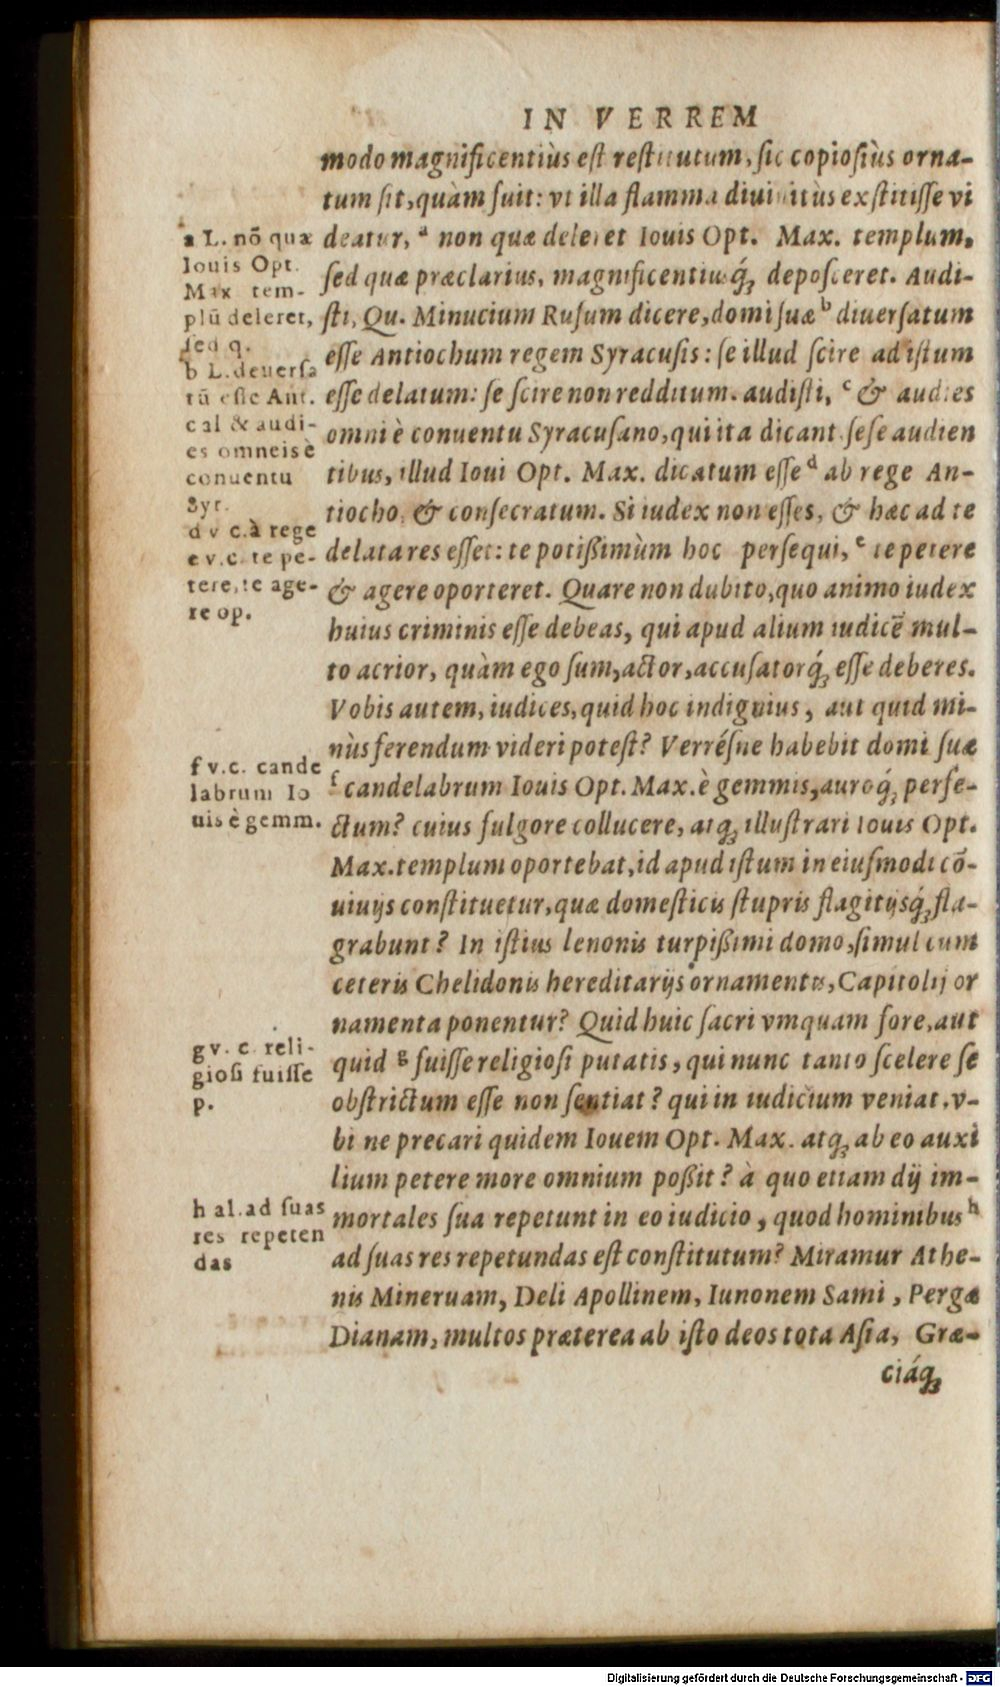 IN VERREM
modo magnificentiùs est restitutum, sic copiosiùs orna-
tum sit, quàm fuit: vt illa flamma diuinitùs exstitisse vi
deatur, a non quæ deleret Iouis Opt. Max. templum,
sed quæ præclarius, magnificentiusq́; deposceret. Audi-
sti, Qu. Minucium Rufum dicere, domi suæ b diuersatum
esse Antiochum regem Syracusis: se illud scire ad istum
esse delatum: se scire non redditum. audisti, c & audies
omni è conuentu Syracusano, qui ita dicant. sese audien
tibus, illud Ioui Opt. Max. dicatum esse d ab rege An-
tiocho, & consecratum. Si iudex non esses, & hæc ad te
delata res esset: te potißimùm hoc persequi, e te petere
& agere oporteret. Quare non dubito, quo animo iudex
huius criminis esse debeas, qui apud alium iudicē mul-
to acrior, quàm ego sum, actor, accusatorq́; esse deberes.
Vobis autem, iudices, quid hoc indignius, aut quid mi-
nùs ferendum videri potest? Verrésne habebit domi suæ
f candelabrum Iouis Opt. Max. è gemmis, auroq́; perfe-
ctum? cuius fulgore collucere, atq; illustrari Iouis Opt.
Max. templum oportebat, id apud istum in eiusmodi cō-
uiuijs constituetur, quæ domesticis stupris flagitijsq́; fla-
grabunt? In istius lenonis turpißimi domo, simul cum
ceteris Chelidonis hereditarijs ornamentis, Capitolij or
namenta ponentur? Quid huic sacri vmquam fore, aut
quid g fuisse religiosi putatis, qui nunc tanto scelere se
obstrictum esse non sentiat? qui in iudicium veniat, v-
bi ne precari quidem Iouem Opt. Max. atq; ab eo auxi
lium petere more omnium poßit? à quo etiam dij im-
mortales sua repetunt in eo iudicio, quod hominibus h
ad suas res repetundas est constitutum? Miramur Athe-
nis Mineruam, Deli Apollinem, Iunonem Sami, Pergæ
Dianam, multos præterea ab isto deos tota Asia, Græ-
ciáq;
a L. nō quæ
Iouis Opt.
Max tem-
plū deleret,
sed q.
b L. deuersa
tū esse Ant.
c al & audi-
es omneis è
conuentu
Syr.
d v c. à rege
e v.c. te pe-
tere, te age-
re op.
f v.c. cande
labrum Io
uis è gemm.
g v. c. reli-
giosi fuisse
p.
h al. ad suas
res repeten
das
Digitalisierung gefördert durch die Deutsche Forschungsgemeinschaft - DFG